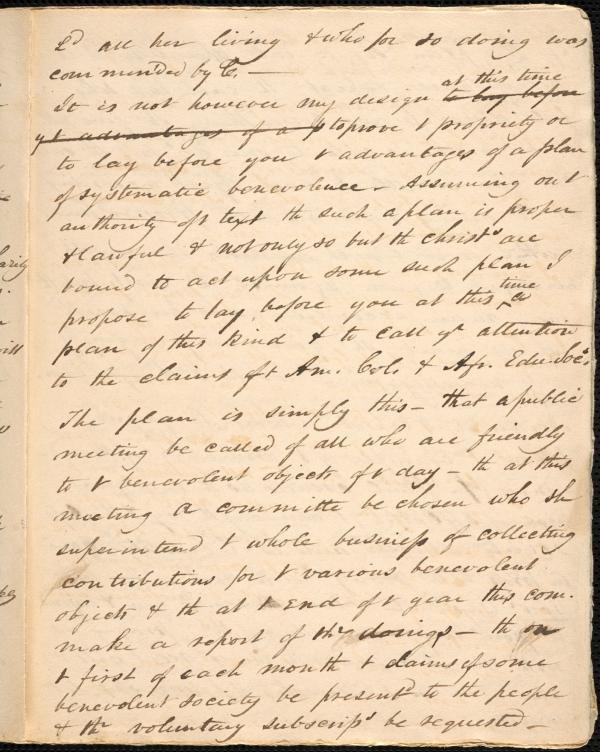 Ld all her living & who for so doing was
commended by C. —
at this time
It is not however my design to lay before
yt advantages of a p to prove t propriety or
to lay before you t advantages of a plan
of systematic benevolence - Assuming on t
authority of t text th such a plan is proper
& lawful & not only so but th christs are
bound to act upon some such plan I
time
propose to lay before you at this a
plan of this kind & to call yr attention
to the claims of t Am. Col. & Afr. Edu. Soc's
The plan is simply this - that a public
meeting be called of all who are friendly
to t benevolent objects of t day - th at this
meeting a committe be chosen who sh
superintend t whole business of collecting
contributions for t various benevolent
objects & th at t End of t year this com.
make a report of thr doings - th on
t first of each month t claims of some
benevolent society be presentd to the people
& thr voluntary subscrips be requested -